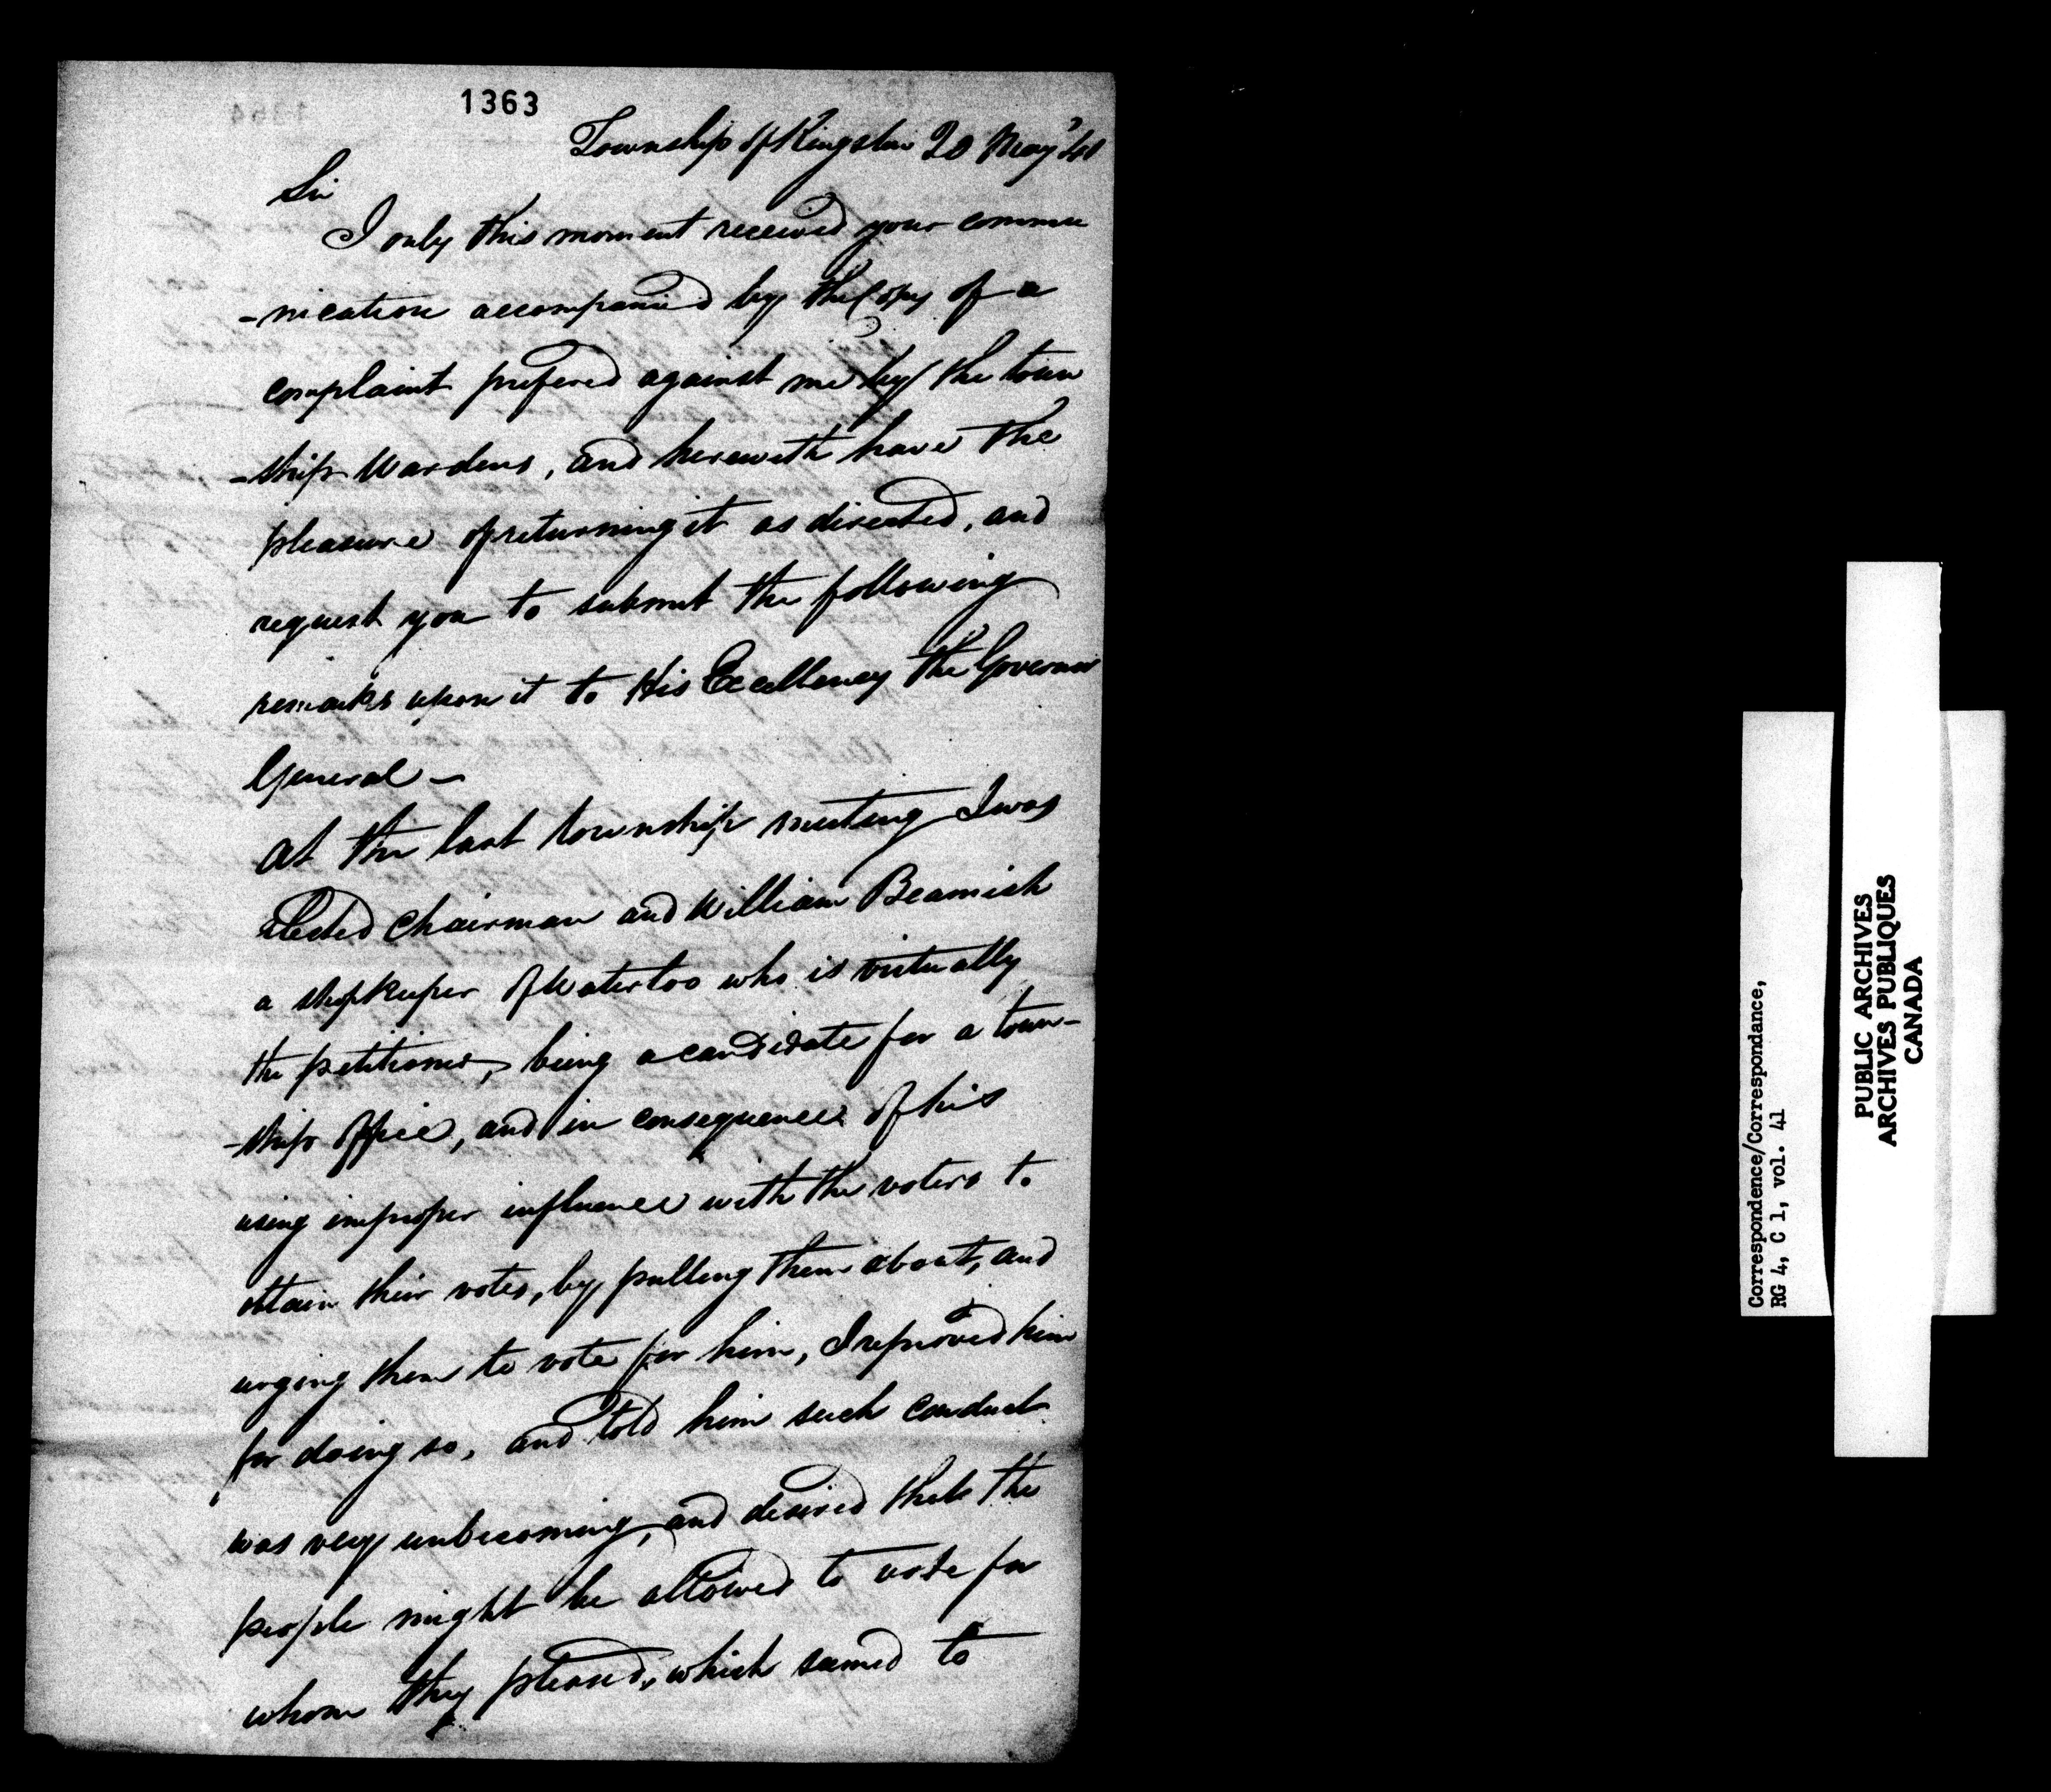 1363
Township of Kingston 20 May '41
Sir
I only this moment received your commu
-nication accompanied by the Copy of a
complaint prefered against me by the town
-ship Wardens, and herewith have the
pleasure of returning it as directed, and
request you to submit the following
remarks upon it to His Excellency the Governor
General -
At the last township meeting I was
elected Chairman and William Beamish
a shopkeeper of Waterloo who is virtually
the petitioner, being a candidate for a town-
-ship office, and in consequence of his
using improper influence with the voters to
obtain their votes, by pulling them about, and
urging them to vote for him, I reproved him
for doing so, and told him such conduct
was very unbecoming, and desired that the
people might be allowed to vote for
whom they pleased, which seemed to
Correspondence/Correspondance,
RG 4, C 1, vol. 41
PUBLIC ARCHIVES
ARCHIVES PUBLIQUES
CANADA